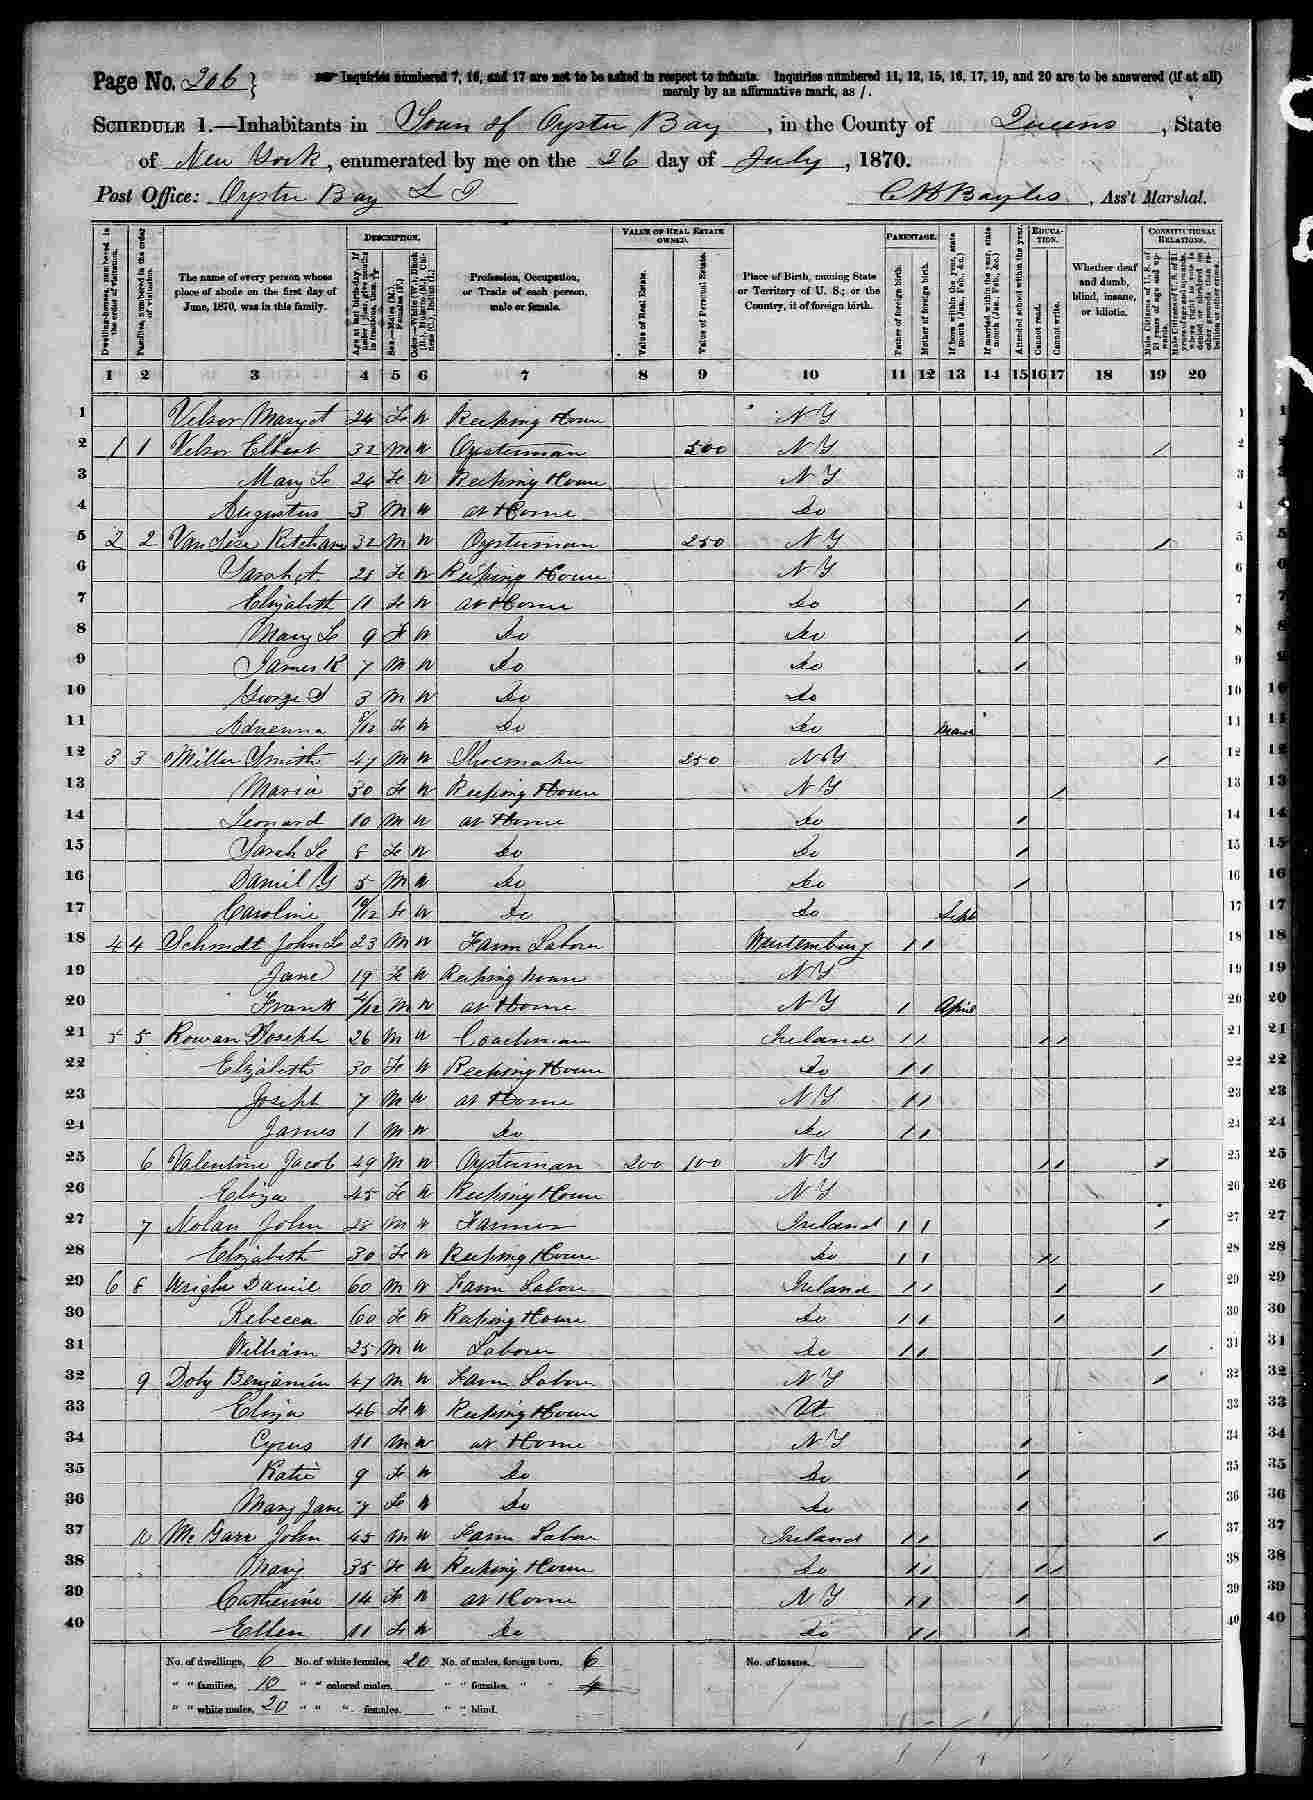 Page No. 206 } Inquiries numbered 7, 16, and 17 are not to be asked in respect to infants. Inquiries numbered 11, 12, 15, 16, 17, 19, and 20 are to be answered (if at all)
merely by an affirmative mark, as /.
SCHEDULE 1.—Inhabitants in Town of Oyster Bay, in the County of Queens, State
of New York, enumerated by me on the 26 day of July, 1870.
Post Office: Oyster Bay L I C H Bayles, Ass't Marshal.
DESCRIPTION. VALUE OF REAL ESTATE OWNED. PARENTAGE. EDUCATION. CONSTITUTIONAL RELATIONS.
Dwelling-houses, numbered in the order of visitation. Families, numbered in the order of visitation. The name of every person whose place of abode on the first day of June, 1870, was in this family. Sex.—Males (M.), Females (F.) Profession, Occupation, or Trade of each person, male or female. Value of Real Estate. Value of Personal Estate. Place of Birth, naming State or Territory of U. S.; or the Country, if of foreign birth. Father of foreign birth. Mother of foreign birth. If born within the year, state month (Jan., Feb., &c.) If married within the year, state month (Jan., Feb., &c.) Attended school within the year. Cannot read. Cannot write. Whether deaf and dumb, blind, insane, or idiotic.
1 2 3 4 5 6 7 8 9 10 11 12 13 14 15 16 17 18 19 20
1 Velsor Mary A 24 Fe W Keeping House N Y 1
2 1 1 Velsor Elbert 32 M W Oysterman 500 N Y / 2
3 Mary Fe 24 Fe W Keeping House N Y 3
4 Augustus 3 M W at Home Do 4
5 2 2 Van Sise Ketcham 32 M W Oysterman 250 N Y / 5
6 Sarah A 28 Fe W Keeping House N Y 6
7 Elizabeth 11 Fe W at Home Do / 7
8 Mary 9 F W Do Do / 8
9 James K 7 M W Do Do / 9
10 George S 3 M W Do Do 10
11 Adrenna Fe W Do Do 11
12 3 3 Miller Smith 47 M W Shoemaker 250 N Y / 12
13 Maria 30 Fe W Keeping House N Y / 13
14 Leonard 10 M W at Home Do / 14
15 Sarah 8 Fe W Do Do / 15
16 Daniel Y 5 M W Do Do / 16
17 Caroline 10/12 Fe W Do Do Sept 17
18 4 4 Schmidt John 23 M W Farm Labore Wurtemburg / / 18
19 Jane 19 Fe W Keeping house N Y 19
20 Frank 2/12 M W at Home N Y / April 20
21 5 5 Rowan Joseph 26 M W Coachman Ireland / / / / 21
22 Elizabeth 30 Fe W Keeping House Do / / 22
23 Joseph 7 M W at Home N Y / / 23
24 James 1 M W Do Do / / 24
25 6 Valentine Jacob 49 M W Oysterman 200 100 N Y / / / 25
26 Eliza 45 Fe W Keeping House N Y 26
27 7 Nolan John 28 M W Farmer Ireland / / / 27
28 Elizabeth 30 Fe W Keeping House Do / / / / 28
29 6 8 Wright Daniel 60 M W Farm Labore Ireland / / / / 29
30 Rebecca 60 Fe W Keeping House Do / / / 30
31 William 25 M W Laborer Do / / / 31
32 9 Doty Benjamin 47 M W Farm Labore N Y / 32
33 Eliza 46 Fe W Keeping House Vt 33
34 Cyrus 11 M W at Home N Y / 34
35 Katie 9 Fe W Do Do / 35
36 Mary Jane 7 Fe W Do Do / 36
37 10 Mc Garr John 45 M W Farm Labor Ireland / / / 37
38 Mary 35 Fe W Keeping House Do / / / / 38
39 Catherine 14 Fe W at Home N Y / / / 39
40 Ellen 11 Fe W Do Do / / / 40
No. of dwellings, 6 No. of white females, 20 No. of males, foreign born, 6 No. of insane,
" " families, 10 " " colored males, " " females, " " 4
" " white males, 20 " " " females, " " blind.